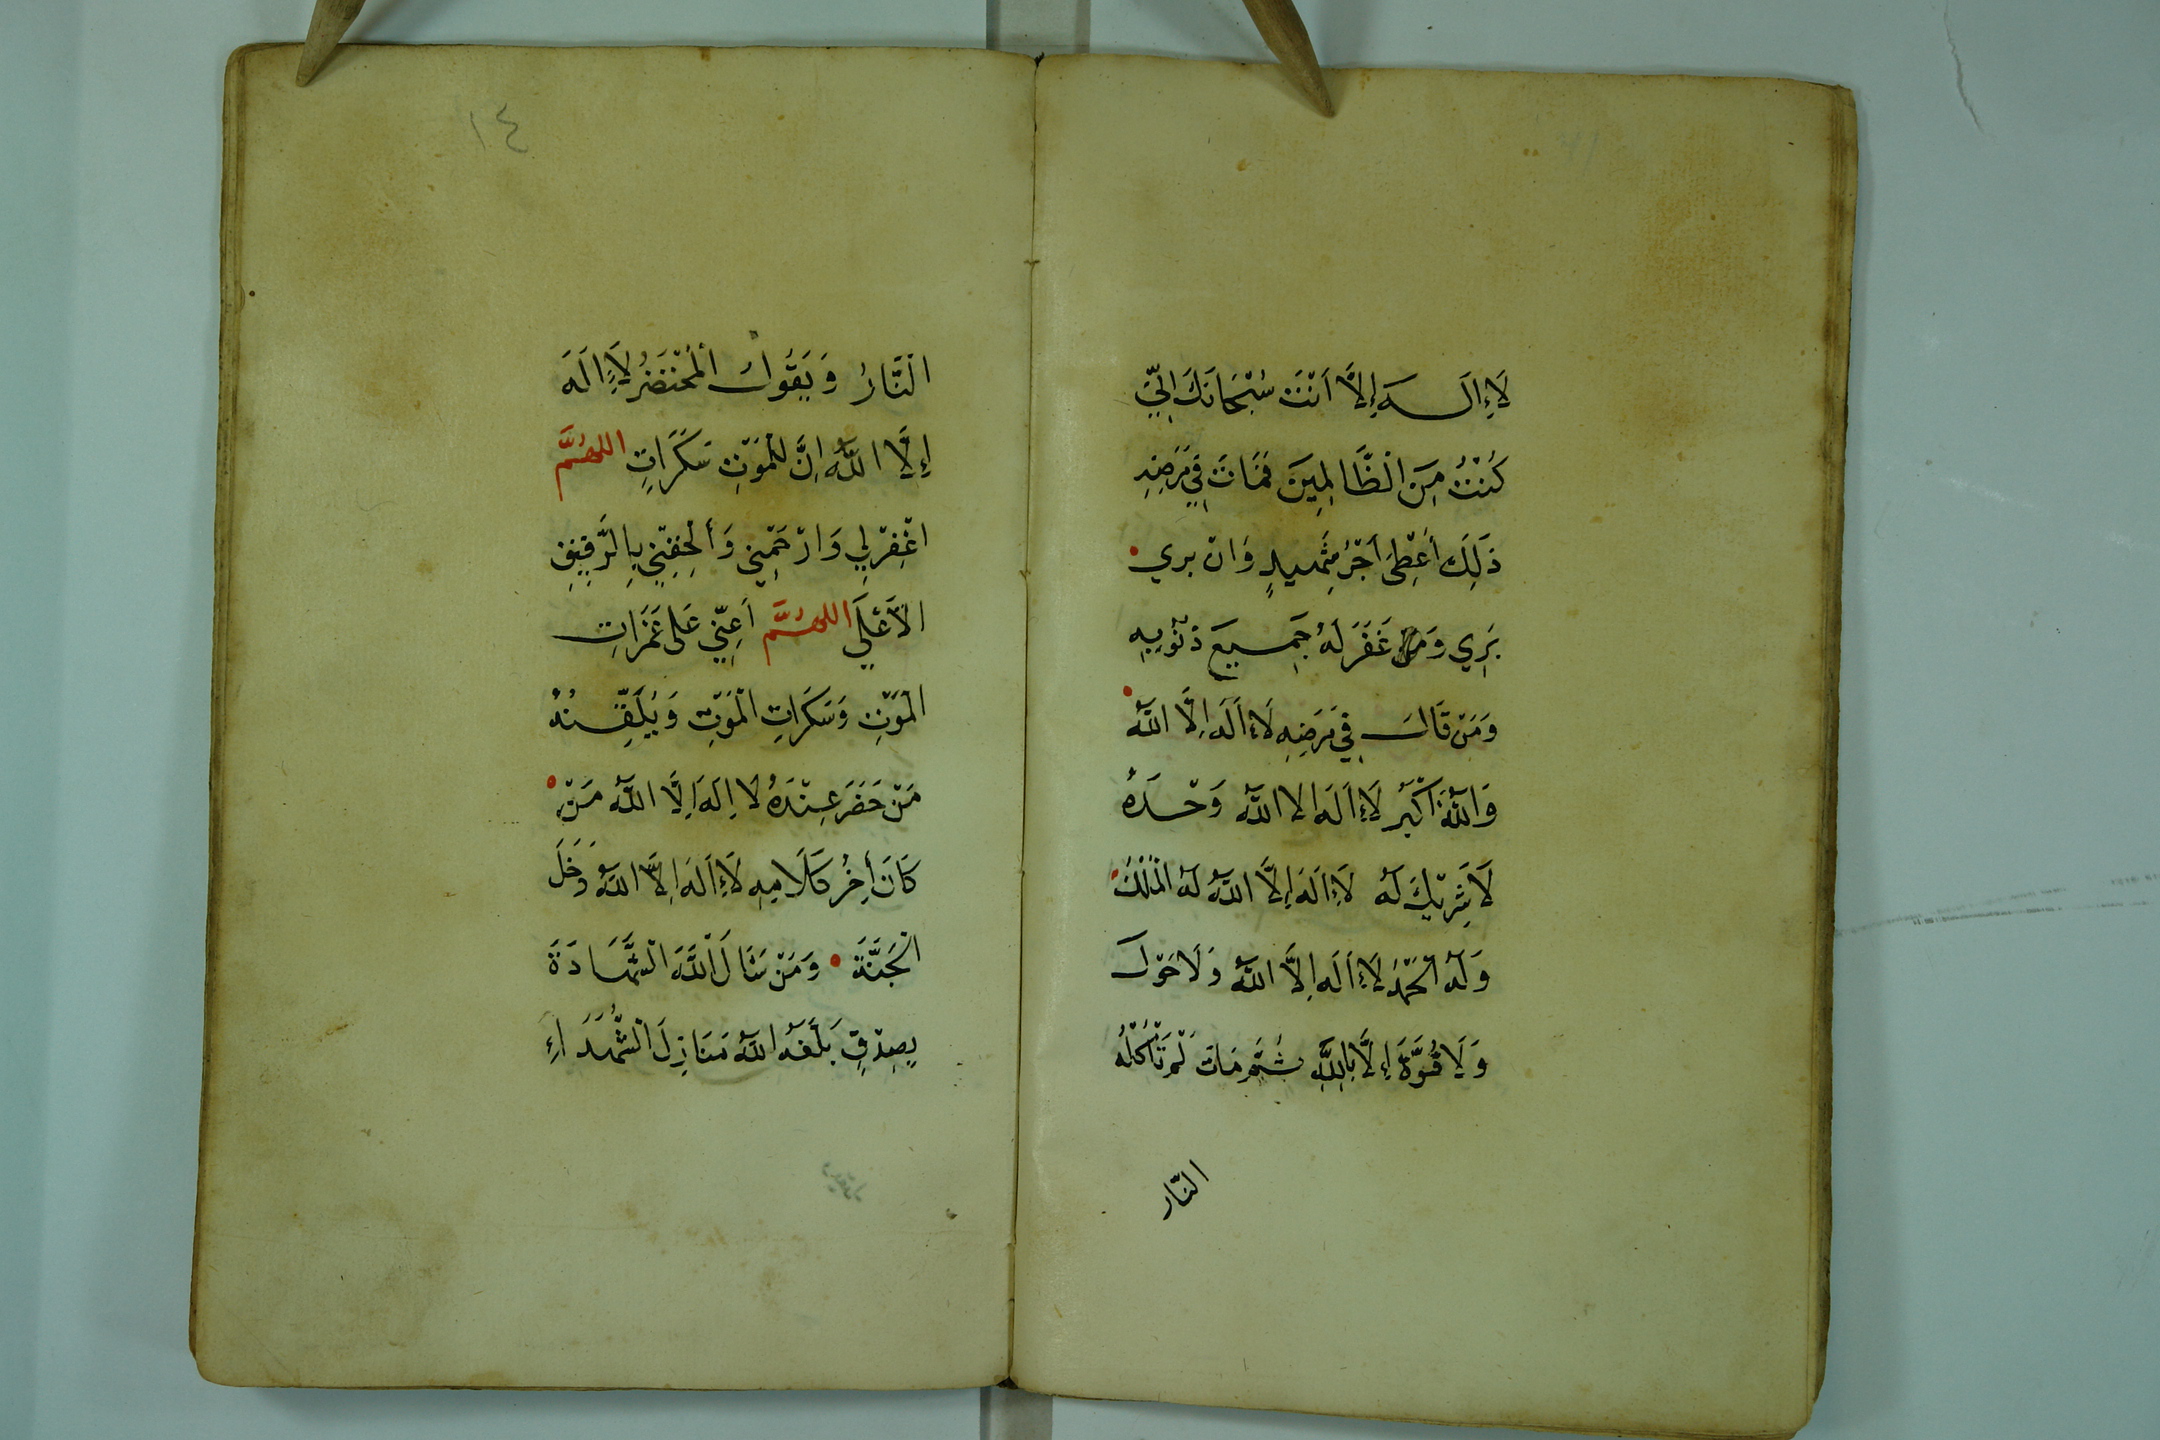 لَا إِلَـــهَ إِلَّا أَنْتَ سُبْحَانَكَ إِنِّي
كُنْتُ مِنَ الْظَّالِمِينَ فَمَاتَ فِي مَرَضِهِ
ذَلِكَ أُعْطِىَ أَجْرُ شَهِيدٍ وَانْ بري
بَرِي وَ غَفَرَ لَهُ جَمِـــيعَ ذنُوبِهِ
وَمَنْ قَالَ فِي مَرَضِهِ لَا إَلَه إِلَّا اللَّهُ
وَاللَّهُ أَكْبَر لَا إَلَه الا اللَّهُ وَحْـدَهُ
لَا شَرِيْكَ لَهُ لَا إِلَهَ إِلَّا اللَّهُ لَهُ الْمُلْكُ
وَلَهُ الْحَمْدُ لَا إَلَه إِلَّا اللَّهُ وَلَا حَوْلَ
وَلَا قُوَّةَ إِلَّا بِاللَّهِ ثُـمَّ مَاتَ لَمْ تَأْكُلْهُ
النّار
١٤
الْنَّارُ وَيَقُولُ الْمُحْتَضَرُ لَا إِلَهَ
إِلَّا اللَّهُ إِنَّ لِلْمَوْتِ سَكَرَاتٍ اللهُمَّ
اغْفِرْ لِي وَارْحَمْنِي وَأَلْحِقْنِي بِالرَّفِيقِ
الأَعْلَي اللهُمَّ أَعِنِّي عَلى غَمَرَاتِ
الْمَوْتِ وَسَكَرَاتِ الْمَوْتِ وَيُلَقِّـنُهُ
مَنْ حَضَرَ عِنْدَهُ لا إِلَهَ إِلَّا اللَّهُ مَنْ
كَانَ أخِرُ كَلَامِهِ لَا إَلَهَ إِلاَّ اللَّهُ دَخَلَ
الْجَنَّةَ وَمَنْ سَئَالَ اللَّهَ الْشَّهَادَةَ
بِصِدْقٍ بَلَّغَهُ اللَّهُ مَنَازِلَ الْشُّهَدَاءِ